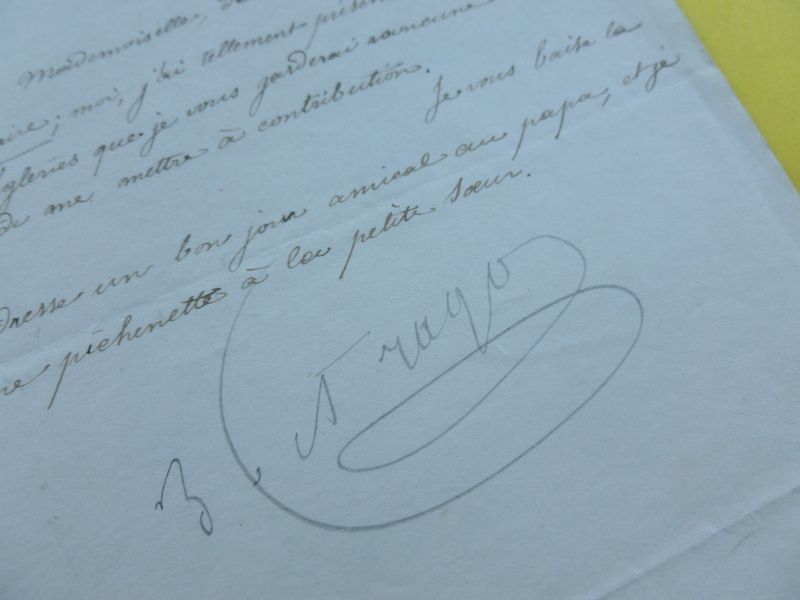 Mademoiselle,
aire; moi, j'ai tellement présen
gleries que je vous garderai rancune
de me mettre à contribution.
Je vous baise la
dresse un bon jour amical au papa, et je
ne pichenette à la petite sœur.
Arago